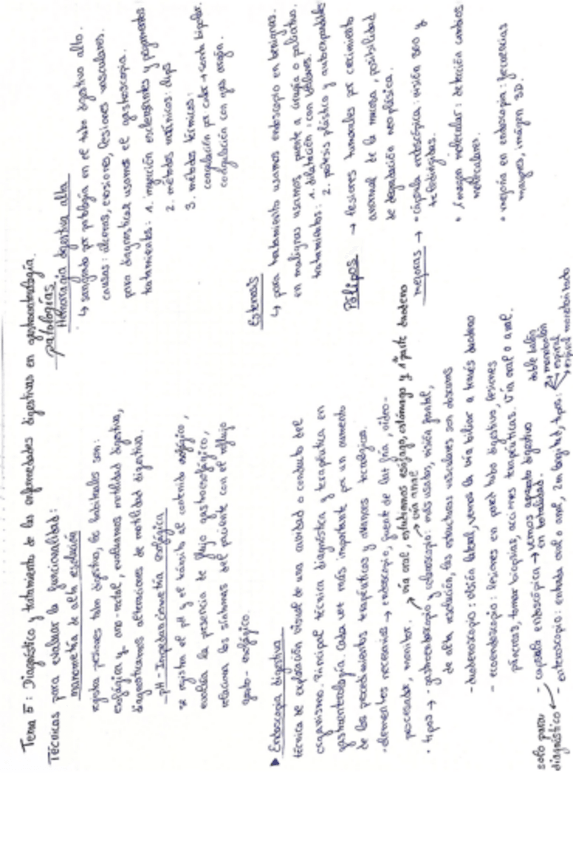 Tema 5: Diagnóstico y tratamiento de las enfermedades digestivas en gastroenterología.
Técnicas para evaluar la funcionalidad:
manometría de alta resolución
registra presiones tubo digestivo, las habituales son:
esofágica y ano-rectal, evaluamos motilidad digestiva,
diagnosticamos alteraciones de motilidad digestiva.
pH-Impedanciometría esofágica
se registra el pH y el tránsito al contenido esofágico,
evalúa la presencia de flujo gastroesofágico,
relaciona los síntomas del paciente con el reflujo
gastro-esofágico.
▶ Endoscopia digestiva
técnica de exploración visual de una cavidad o conducto del
organismo. Principal técnica diagnóstica y terapéutica en
gastroenterología. Cada vez más importante por un aumento
de los procedimientos terapéuticos y avances tecnológicos.
· elementos necesarios → endoscopio, fuente de luz fría, vídeo-
procesador, monitor.
→ vía oral, estudiamos esófago, estómago y 1ª parte duodeno
· tipos → - gastroscopio y colonoscopio: más usados, visión frontal,
→ vía anal
de alta resolución, las estructuras vasculares son oscuras
- duodenoscopio: visión lateral, vemos la vía biliar a través duodeno
- ecoendoscopio: lesiones en pared tubo digestivo, lesiones
páncreas, tomar biopsias, acciones terapéuticas. Vía oral o anal.
solo para diagnóstico ← - cápsula endoscópica → vemos aparato digestivo en totalidad.
- enteroscopio: entrada oral o anal, 2m longitud, tipos:
doble balón
monobalón
espiral
espiral monetorizado
patologías
Hemorragia digestiva alta
↳ sangrado por patología en el tubo digestivo alto.
causas: úlceras, erosiones, lesiones vasculares.
para diagnosticar usamos el gastroscopio.
tratamientos: 1. inyección esclerosantes y pegamentos
2. métodos mecánicos: clips
3. métodos térmicos:
coagulación por calor → sonda bipolar.
coagulación con gas argón.
Estenosis
↳ para tratamiento usamos endoscopio en benignas.
en malignas usamos puente a cirugía o paliativo.
tratamientos: 1. dilatación: con balones.
2. prótesis plástico y autoexpandibles
Pólipos → lesiones tumorales por crecimiento
anormal de la mucosa, posibilidad
de degradación neoplásica.
mejoras → · cápsula endoscópica: visión 360 y
teledirigidas.
· imagen molecular: detección cambios
moleculares.
· mejoría en endoscopia: herencias
imagen, imagen 3D.